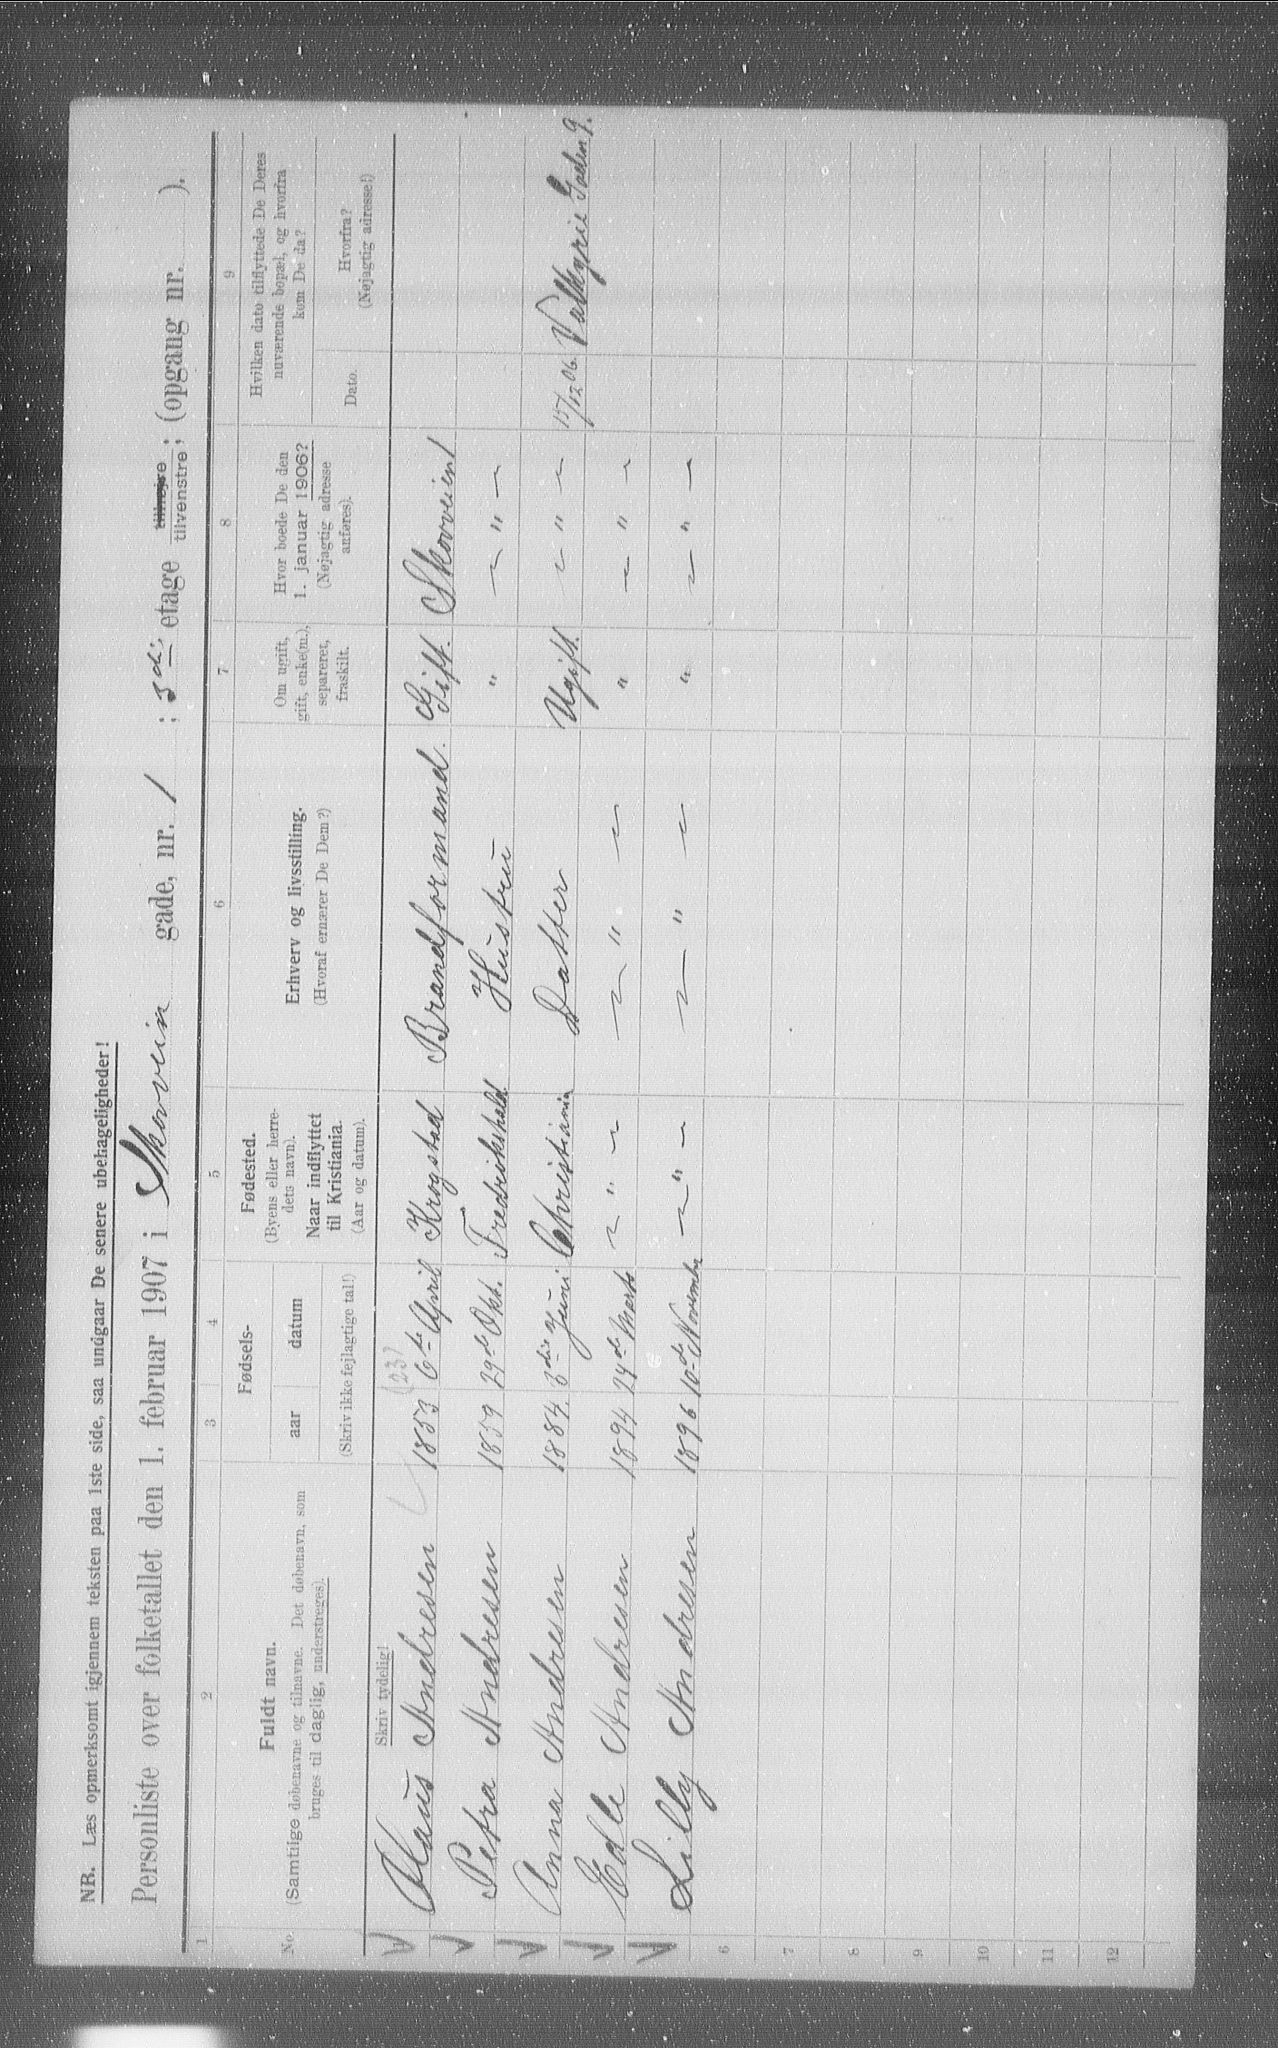 NB. Læs opmerksomt igjennem teksten paa 1ste side, saa undgaar De senere ubehageligheder!
Personliste over folketallet den 1. februar 1907 i Skovvein gade, nr. 1 ; etage tilhøjre tilvenstre; (opgang nr. ).
1 2 3 4 5 6 7 8 9
No. Fuldt navn. (Samtlige døbenavne og tilnavne. Det døbenavn, som bruges til daglig, understreges).
Fødsels- aar datum (Skriv ikke fejlagtige tal!)
Fødested. (Byens eller herredets navn). Naar indflyttet til Kristiania. (Aar og datum).
Erhverv og livsstilling. (Hvoraf ernærer De Dem?)
Om ugift, gift, enke(m.), separeret, fraskilt.
Hvor boede De den 1. januar 1906? (Nøjagtig adresse anføres).
Hvilken dato tilflyttede De Deres nuværende bopæl, og hvorfra kom De da?
Dato. Hvorfra? (Nøjagtig adresse!)
Skriv tydelig!
Olaus Andresen 1853 6te April Krogstad Brandformand. Gift. Skovveien 1
Petra Andresen 1859 29de Okt. Fredrikshald Hustru " — " —
Anna Andresen 1884. 3die Juni Christiania Datter Ugift. — " — 15/12 06. Valkyrie 9.
Edle Andresen 1894 24de Marts — " — — " — " — " —
Lilly Andresen 1896 10de November — " — — " — " — " —
6
7
8
9
10
11
12